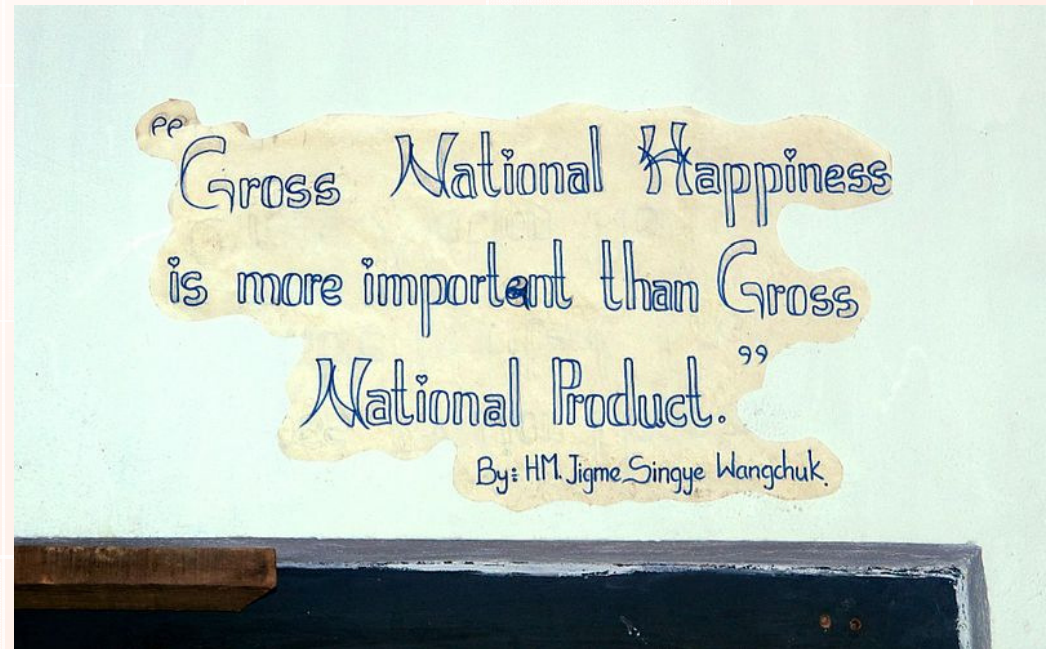 “Gross National Happiness
is more important than Gross
National Product.”
By: HM. Jigme Singye Wangchuk.